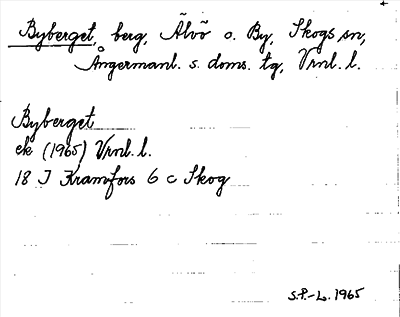 Byberget, berg, Älvö o. By, Skogs sn,
Ångermanl. s. doms. tg, Vrnl. l.
Byberget
ek (1965) Vrnl. l.
18 J Kramfors 6 c Skog
S.P.-L. 1965